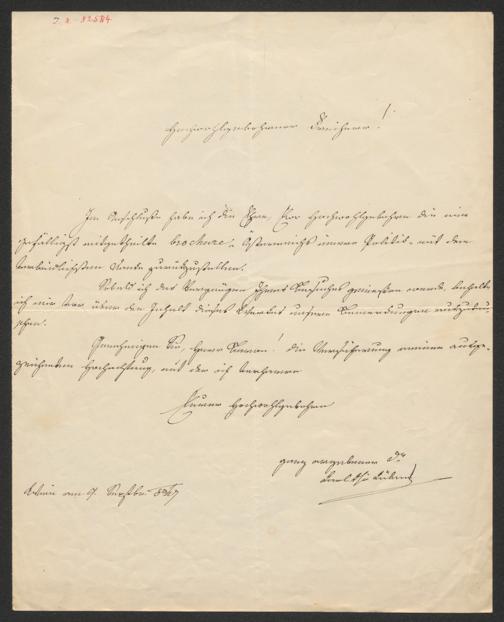 I. N. 82584
Hochwohlgeborener Freiherr!
Im Anschluße habe ich die Ehre, Euer Hochwohlgeboren die mir
gefälligst mitgetheilte brochure, „Österreichs innere Politik" mit dem
verbindlichsten Danke zurückzustellen.
Sobald ich das Vergnügen Ihres Besuches genießen werde, behalte
ich mir vor über den Inhalt dieses Werkes unsere Bemerkungen auszutau-
schen.
Genehmigen Sie, Herr Baron! die Versicherung meiner ausge-
zeichneten Hochachtung, mit der ich verharre
Euer Hochwohlgeboren
ganz ergebener
Wien am 9. Septbr.